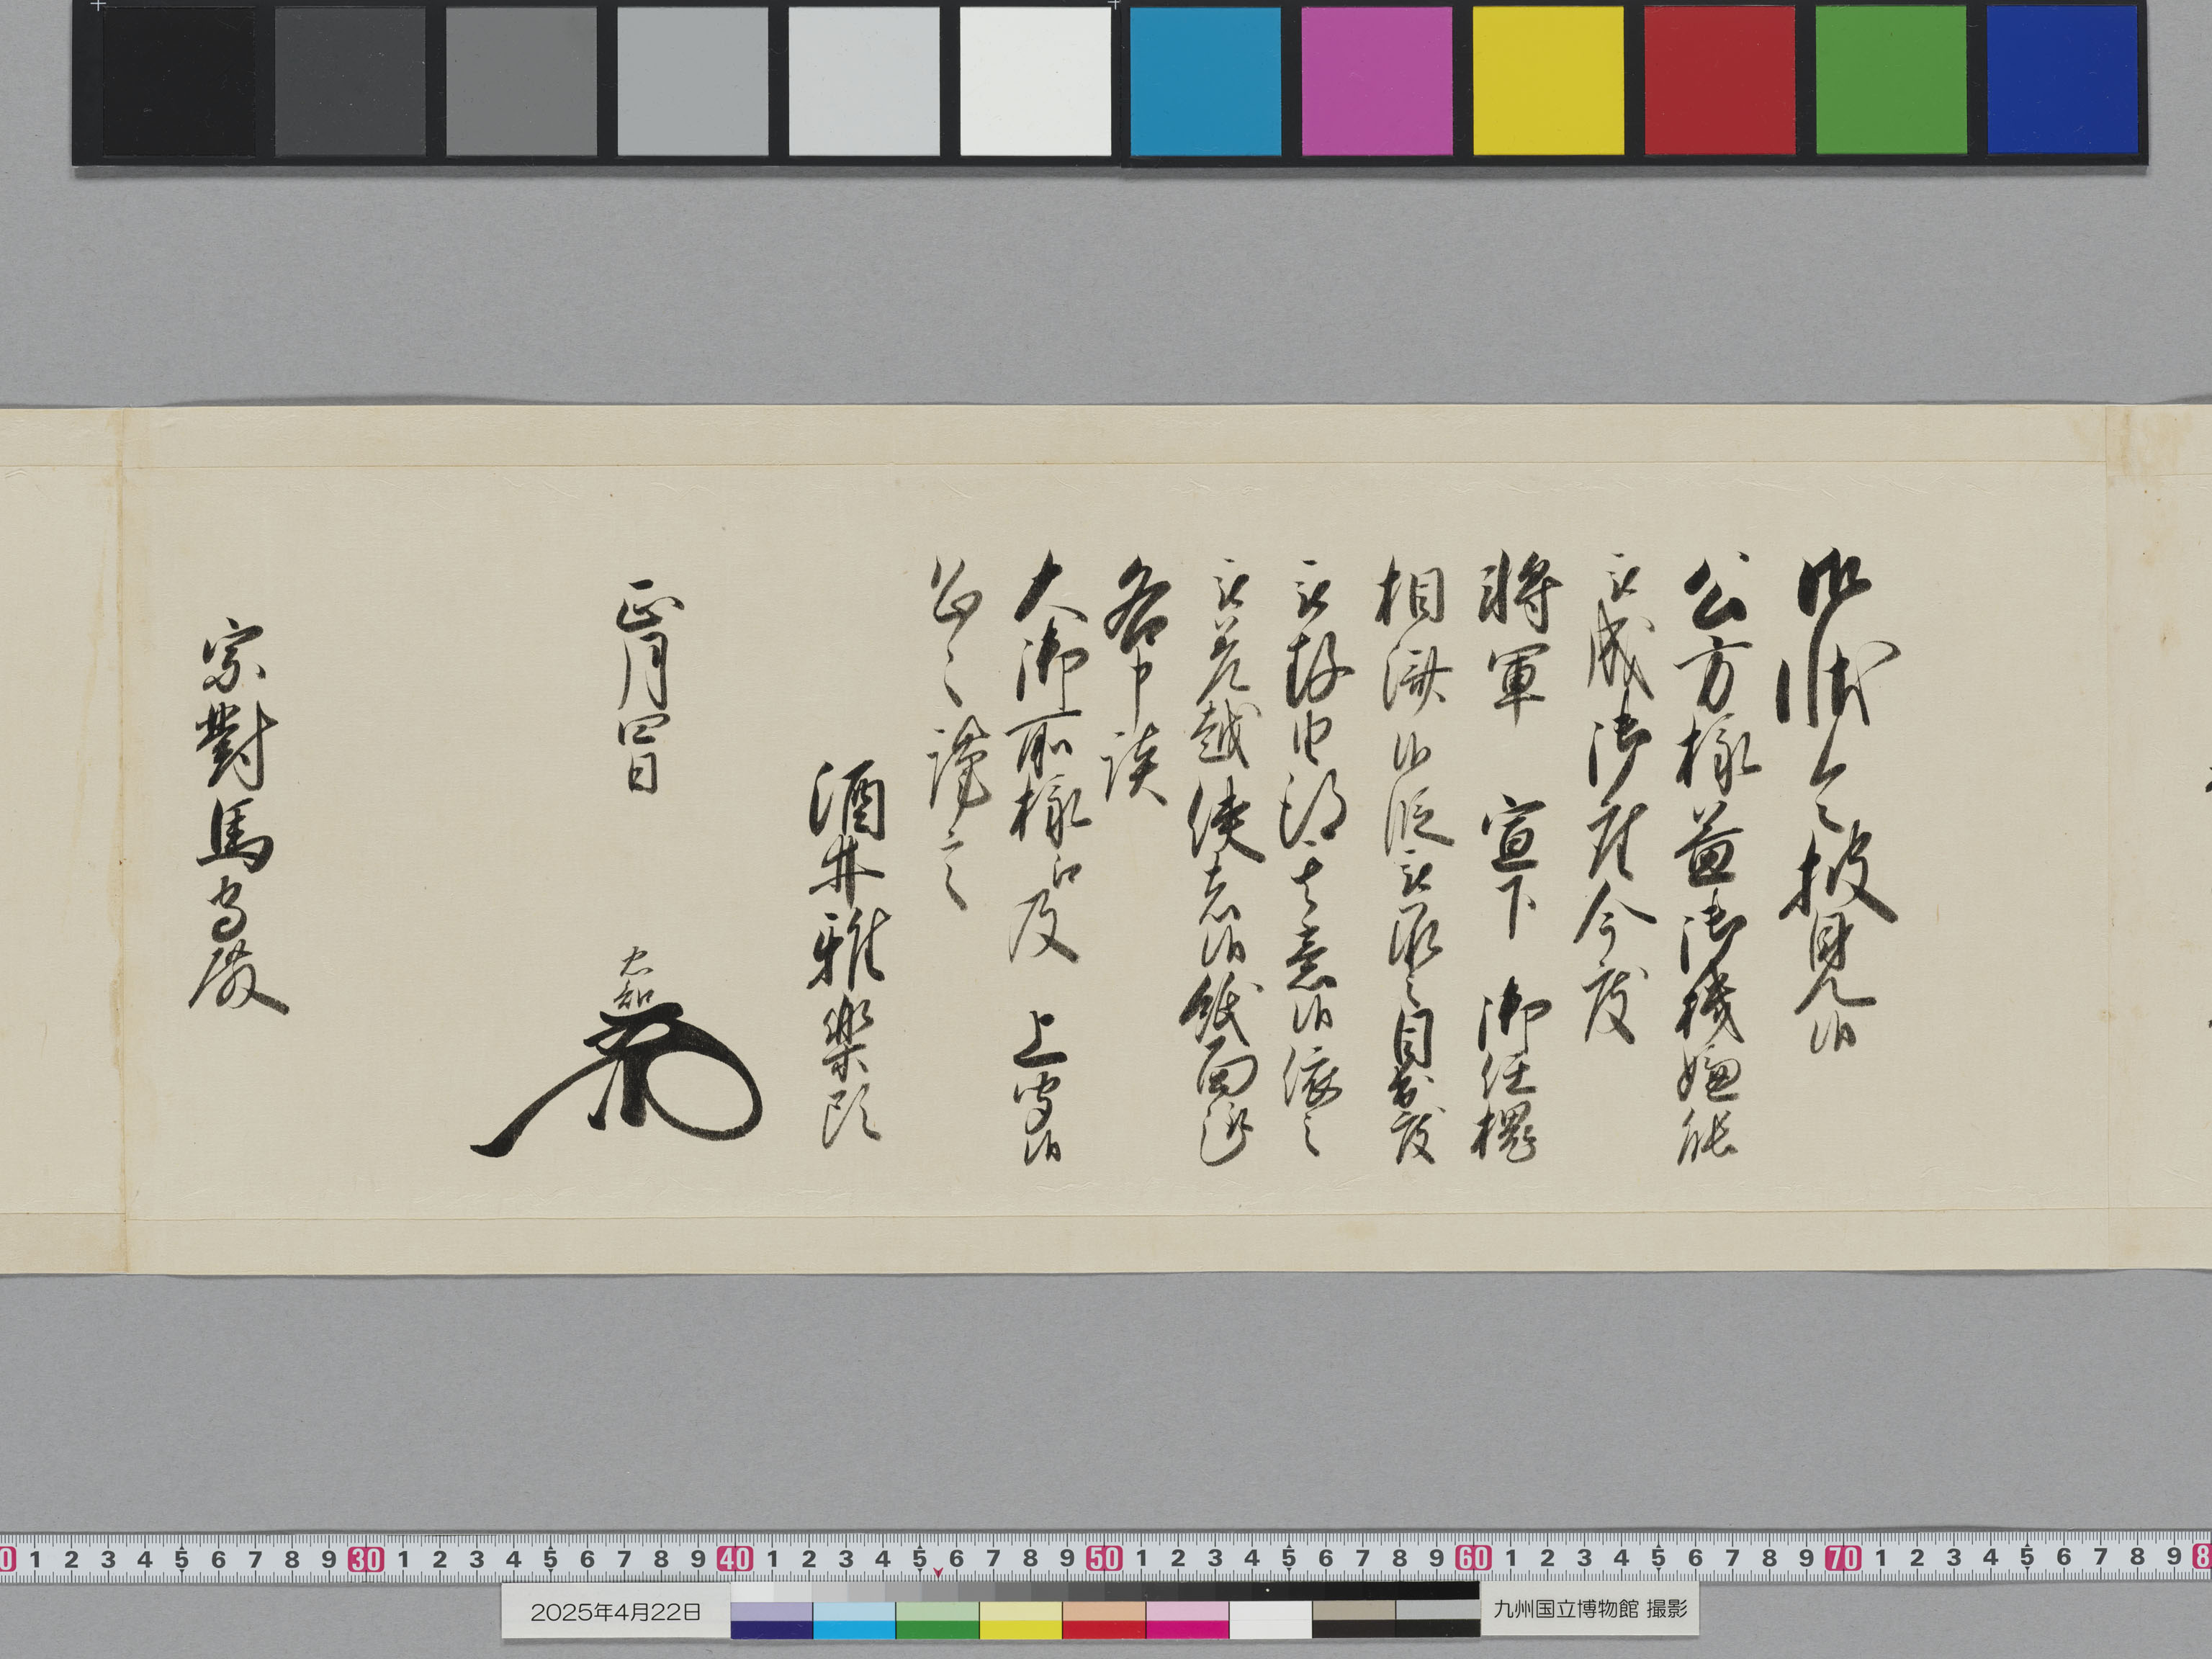 御状令披見候
公方様益御機嫌能
被成御座今度
將軍　宣下　御任槐
相濟候段被承之目出度
被存由得其意候依之
被差越使者候紙面趣
各申談
大御所様江及　上聞候
恐々謹言
酒井雅楽頭
正月四日
忠知
宗對馬守殿
0 1 2 3 4 5 6 7 8 9 30 1 2 3 4 5 6 7 8 9 40 1 2 3 4 5 6 7 8 9 50 1 2 3 4 5 6 7 8 9 60 1 2 3 4 5 6 7 8 9 70 1 2 3 4 5 6 7 8 9 8
2025年4月22日
九州国立博物館 撮影